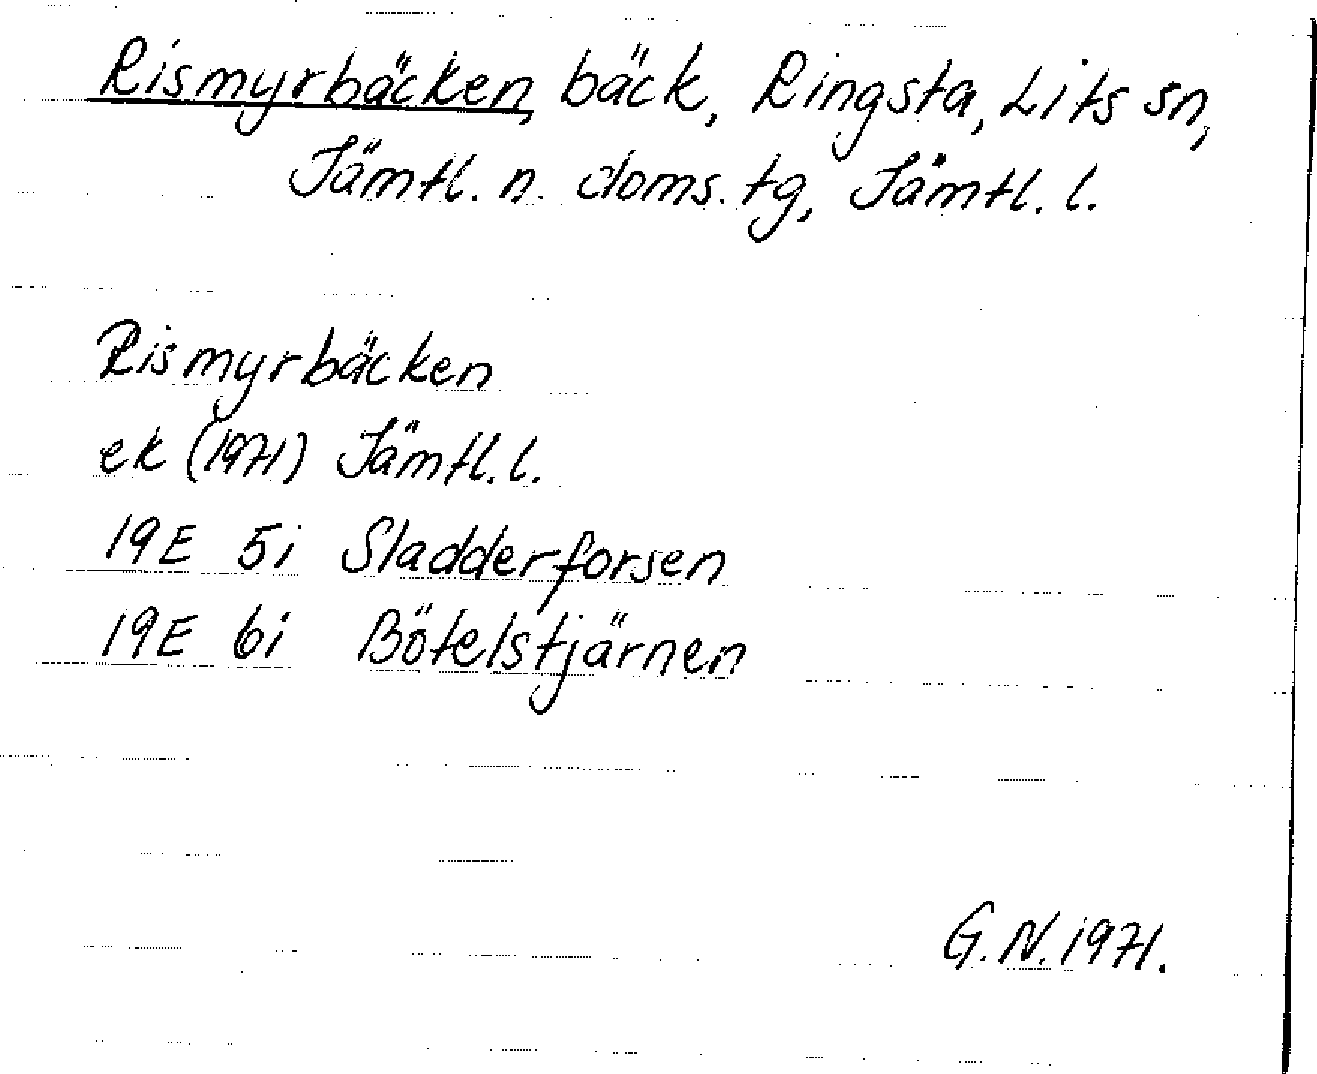 Rismyrbäcken, bäck, Ringsta, Lits sn,
Jämtl. n. doms. tg, Jämtl. l.
Rismyrbäcken
ek (1971) Jämtl. l.
19E 5i Sladderforsen
19E 6i Bötelstjärnen
G. N. 1971.